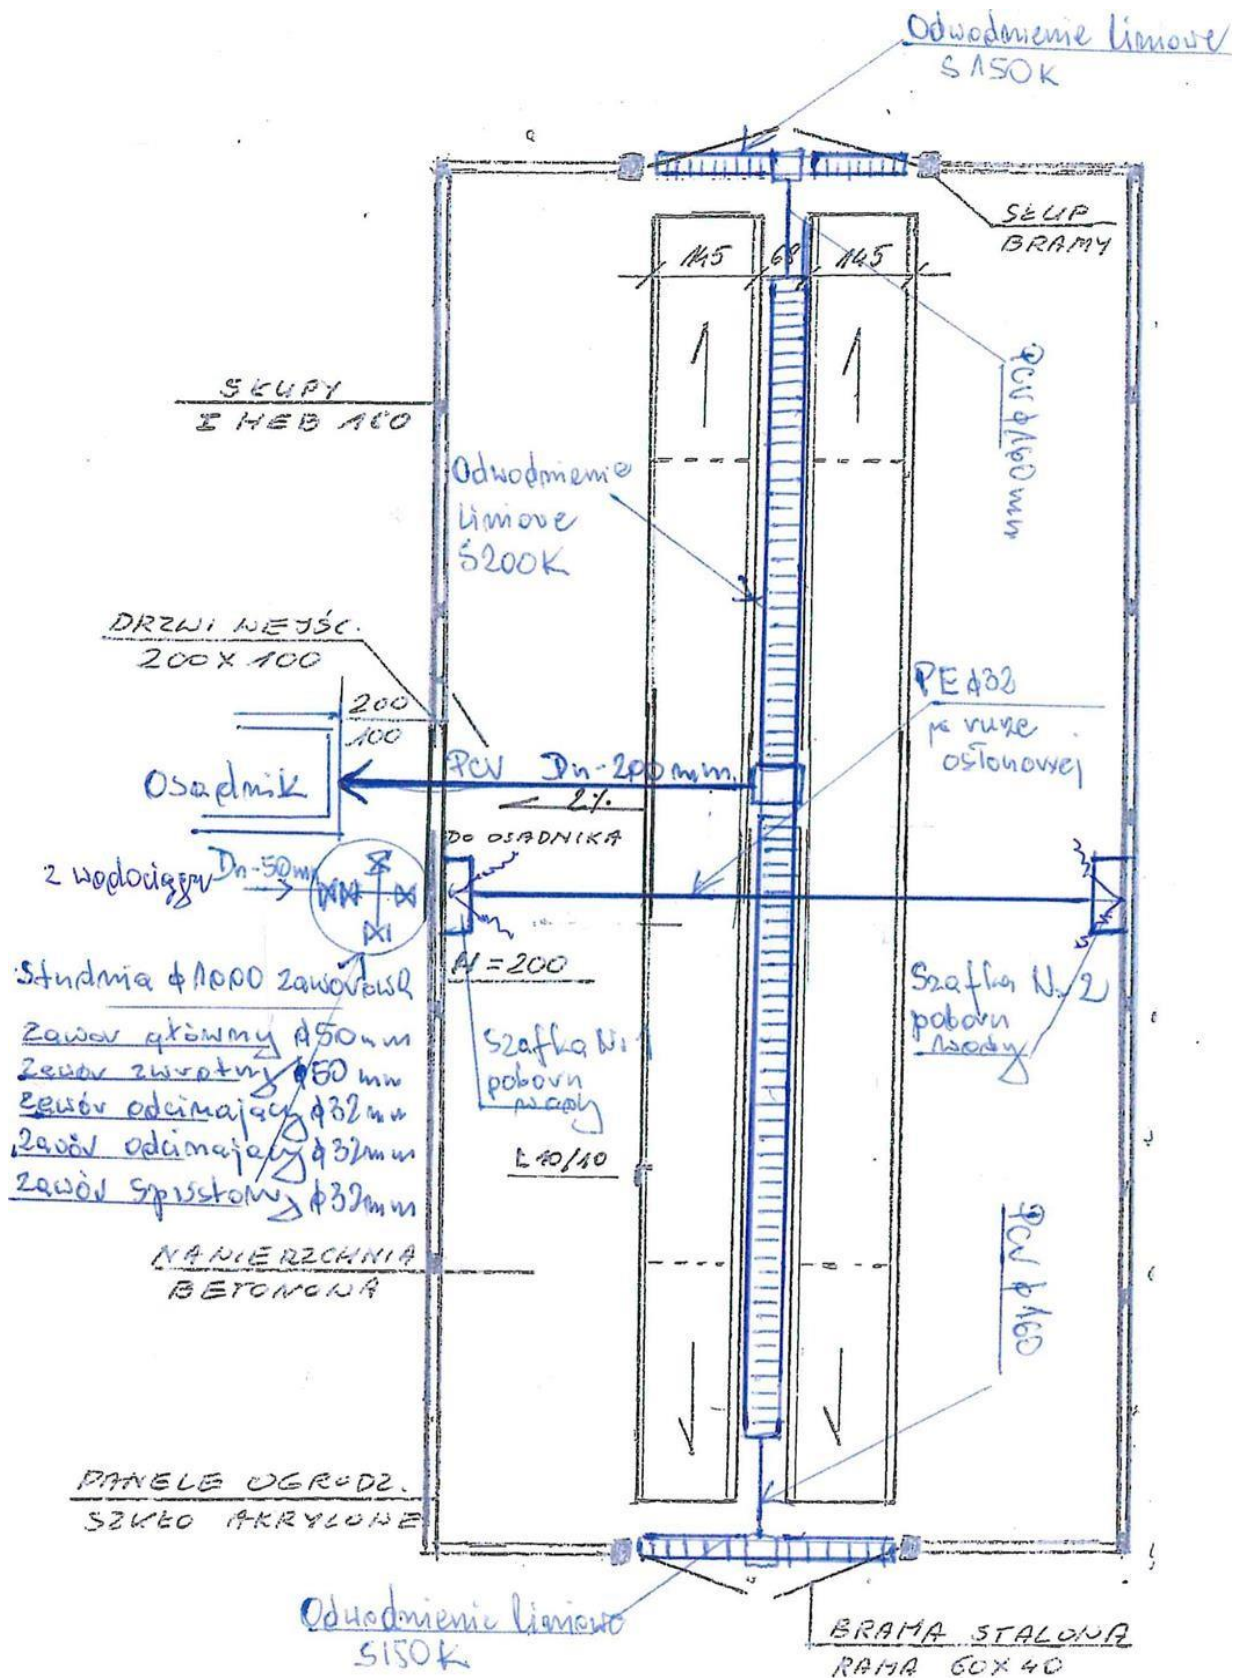 Odwodnienie liniowe
S150K
SŁUP
BRAMY
145
68
145
PCV ϕ160mm
SŁUPY
I HEB 160
Odwodnienie
liniowe
S200K
DRZWI WEJŚC.
200 X 100
200
100
PE ϕ32
w rurze
osłonowej
Osadnik
PCV Dn-200mm
2%
DO OSADNIKA
z wodociągu
Dn-50mm
H=200
Studnia ϕ1000 zaworowa
zawór główny ϕ50mm
zawór zwrotny ϕ50mm
zawór odcinający ϕ32mm
zawór odcinający ϕ32mm
zawór spustowy ϕ32mm
Szafka Nr 1
poboru
wody
Szafka Nr 2
poboru
wody
L 10/10
PCV ϕ160
NAWIERZCHNIA
BETONOWA
PANELE OGRODZ.
SZKŁO AKRYLOWE
Odwodnienie liniowe
S150K
BRAMA STALOWA
RAMA 60X40